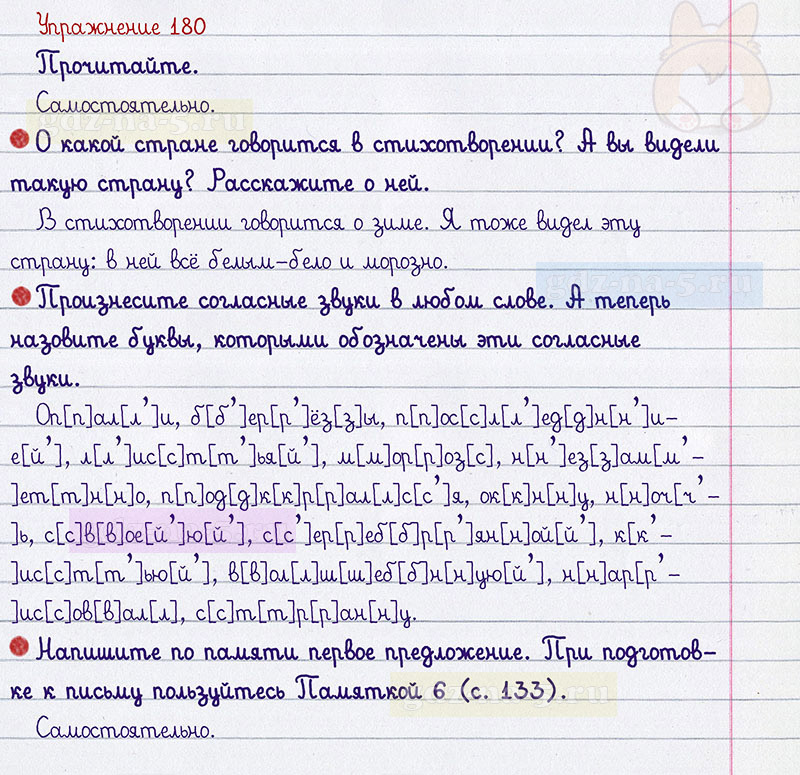 Упражнение 180
Прочитайте.
Самостоятельно.
gdz-na-5.ru
О какой стране говорится в стихотворении? А вы видели
такую страну? Расскажите о ней.
В стихотворении говорится о зиме. Я тоже видел эту
страну: в ней всё белым-бело и морозно.
gdz-na-5.ru
Произнесите согласные звуки в любом слове. А теперь
назовите буквы, которыми обозначены эти согласные
звуки.
Оп[п]ал[л’]и, б[б’]ер[р’]ёз[з]ы, п[п]ос[с]л[л’]ед[д]н[н’]и-
е[й’], л[л’]ис[с]т[т’]ья[й’], м[м]ор[р]оз[с], н[н’]ез[з]ам[м’-
]ет[т]н[н]о, п[п]од[д]к[к]р[р]ал[л]с[с’]я, ок[к]н[н]у, н[н]оч[ч’-
]ь, с[с]в[в]ое[й’]ю[й’], с[с’]ер[р]еб[б]р[р’]ян[н]ой[й’], к[к’-
]ис[с]т[т’]ью[й’], в[в]ол[л]ш[ш]еб[б]н[н]ую[й’], н[н]ар[р’-
]ис[с]ов[в]ал[л], с[с]т[т]р[р]ан[н]у.
Напишите по памяти первое предложение. При подготов-
ке к письму пользуйтесь Памяткой 6 (с. 133).
gdz-na-5.ru
Самостоятельно.